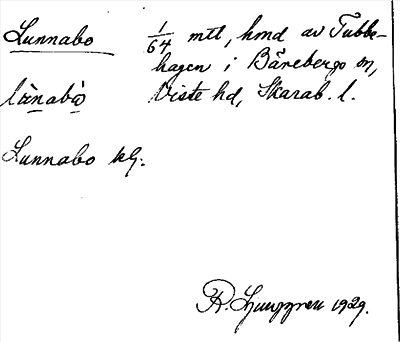 Lunnabo 1/64 mtl, hmd av Tubbe-
hagen i Bärebergs sn,
lùnabò Viste hd, Skarab. l.
Lunnabo kg:
R. Ljunggren 1929.